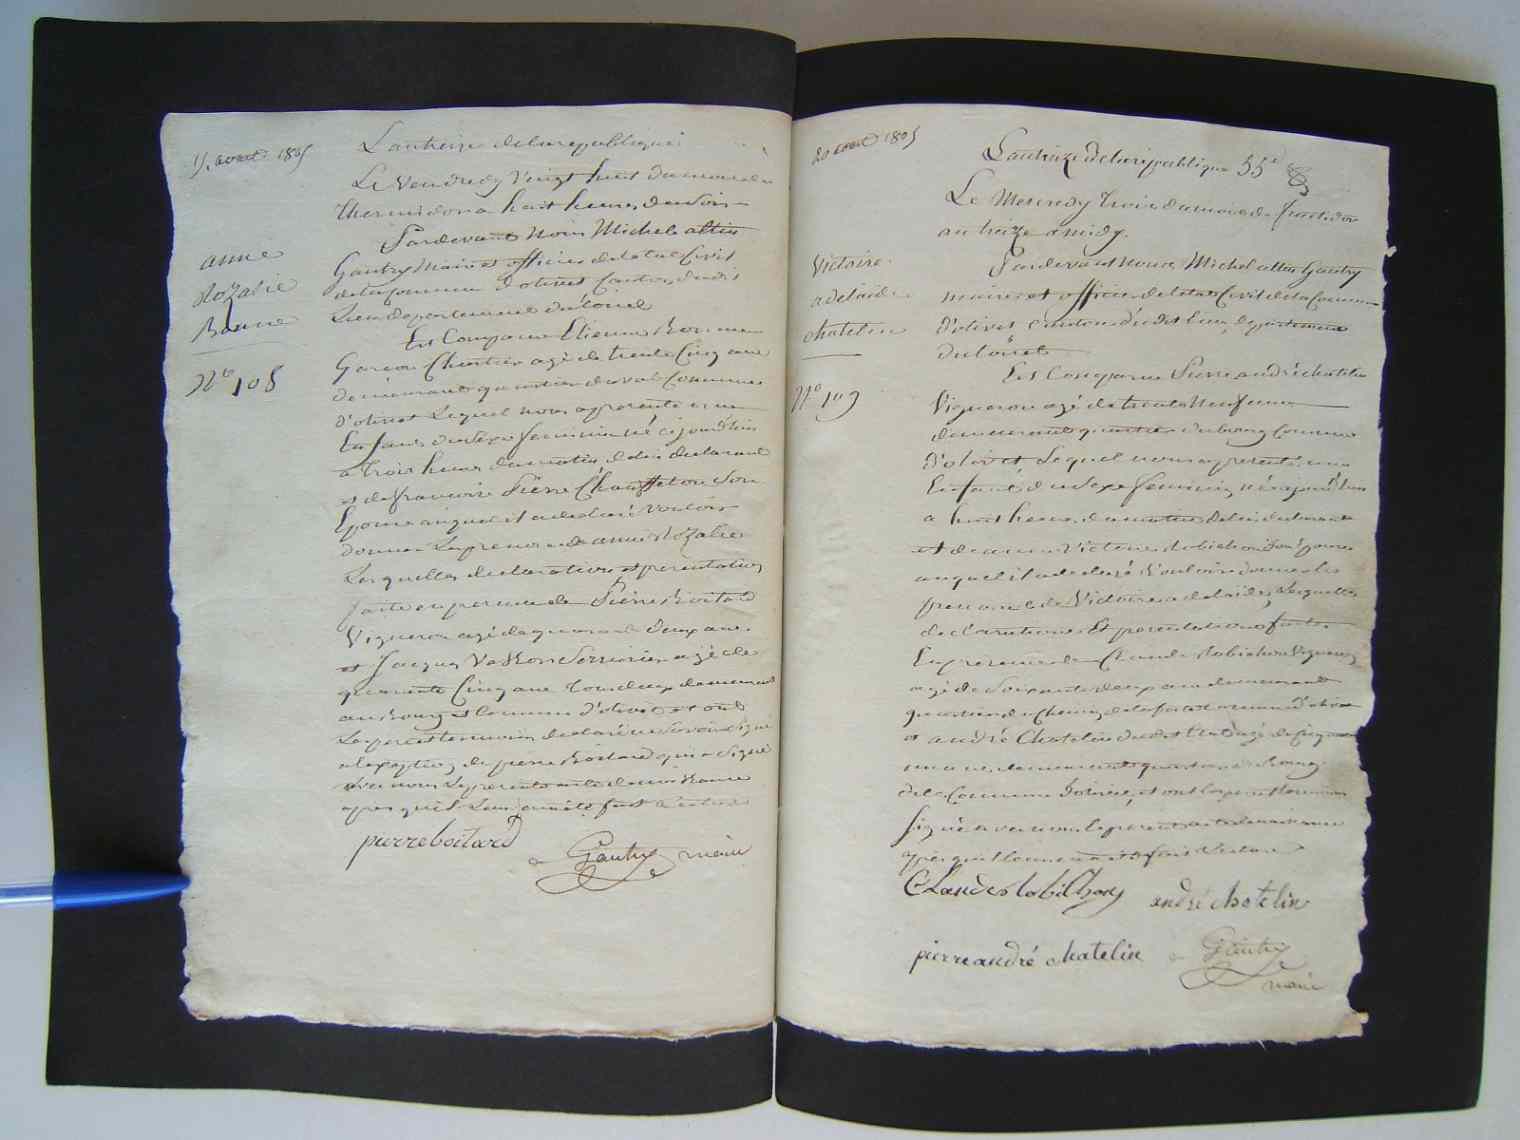 aout 1805
L'an treize de la republique
Le Vendredy Vingt huit du mois de
thermidor a huit heures du soir
Pardevant Nous Michel altin
Gautry Maire et officier de l'etat Civil
de la Commune d'olivet Canton dudit
Lieu departement du Loiret
anne
Rozalie
Bonne
Est Comparu Etienne
Garcon Chartier agé de trente Cinq ans
demeurant quartier du val Commune
No 108
d'olivet Lequel nous a presenté un
Enfant du sexe feminin né cejourd'hui
a trois heures du matin de lui declarant
et de francoise son
Epouse auquel il a declaré vouloir
donner Les prenoms de anne Rozalie
Lesquelles declaration et presentation
faite en presence de Pierre Boitard
Vigneron agé de quarante deux ans
et Jacques Serrurier agé de
quarante Cinq ans tous deux demeurant
au Bourg Commune d'olivet et ont
Les pere et temoin declaré ne Savoir Signé
a l'exception de pierre Boitard qui a Signé
avec nous Le present acte de naissance
apres qu'il Leur en a été fait Lecture
pierre boitard
Gautry maire
20 aout 1805
L'an treize de la republique 55e
Le Mercredy trois du mois de fructidor
an treize a midy.
Pardevant nous Michel altin Gautry
maire et officier de l'etat Civil de la Commune
d'olivet Canton dudit Lieu, departement
du Loiret
Victoire
adelaide
chatelin
Est Comparu Pierre andré chatelin
No 109
Vigneron agé de trente Neuf ans
demeurant quartier du bourg Commune
d'olivet Lequel nous a presenté un
Enfant du sexe feminin né cejourd'hui
a huit heures du matin de lui declarant
et de anne Victoire Robichon son Epouse
auquel il a declaré Vouloir donner les
prenoms de Victoire adelaide, Lesquelles
declarations Et presentations faites
En presence de Claude Robichon Vigneron
agé de Soixante deux ans demeurant
quartier du Commune d'olivet
et andré Chatelin
demeurant quartier du Bourg
de la Commune d'olivet, et ont Les pere et temoins
signé avec nous le present acte de naissance
apres qu'il Leur en a été fait Lecture
Claude Robichon andré chatelin
pierre andré chatelin Gautry
maire